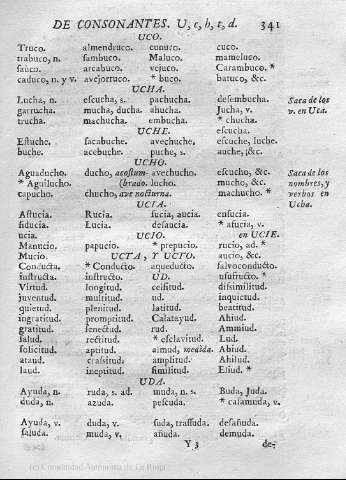 DE CONSONANTES. U, c, h, t, d. 341
UCO.
Truco. almendruco. cunuco. cuco.
trabuco, n. sambuco. Maluco. mameluco.
saúco. arcabuco. vejuco. Carambuco. *
caduco, n. y v. avejorruco. * buco. batuco, &c.
UCHA.
Lucha, n. escucha, s. pachucha. desembucha. Saca de los
garrucha. mucha, ducha. ahucha. Jucha, v. v. en Uca.
trucha. machucha. embucha. * chucha.
UCHE. escucha.
Estuche. sacabuche. avechuche. escuche, luche.
buche. acebuche. puche, s. auche, &c.
UCHO.
Aguaducho. ducho, acostum- avechucho. escucho, &c. Saca de los
* Aguilucho. (brado. lucho. mucho, &c. nombres, y
capucho. chucho, ave nocturna. machucho. * verbos en
UCIA. Ucha.
Astucia. Rucia. sucia, aucia. ensucia.
fiducia. Lucia. desaucia. * afucia, v.
ucia. UCIO. en UCIE.
Manucio. papucio. * prepucio. rucio, ad. *
Mucio. UCTA, Y UCTO. aucio, &c.
Conducta. * Conducto. aqueducto. salvoconducto.
instructa. instructo. UD. usufructo. *
Virtud. longitud. celsitud. dissimilitud.
juventud. multitud. ud. inquietud.
quietud. plenitud. latitud. beatitud.
ingratitud. promptitud. Calatayud. Ahiud.
gratitud. senectud. rud. Ammiud.
salud. rectitud. * esclavitud. Lud.
solicitud. aptitud. almud, medida. Abiud.
ataud. crassitud. amplitud. Ahilud.
laud. ineptitud. similitud. Eliud. *
UDA.
Ayuda, n. ruda, s. ad. muda, n. s. Buda, Juda.
duda, n. azuda. pescuda. * calamuda, v.
Ayuda, v. duda, v. suda, trassuda. desañuda.
saluda. muda, v. añuda. demuda.
Y 3 de-
(c) Comunidad Autónoma de La Rioja